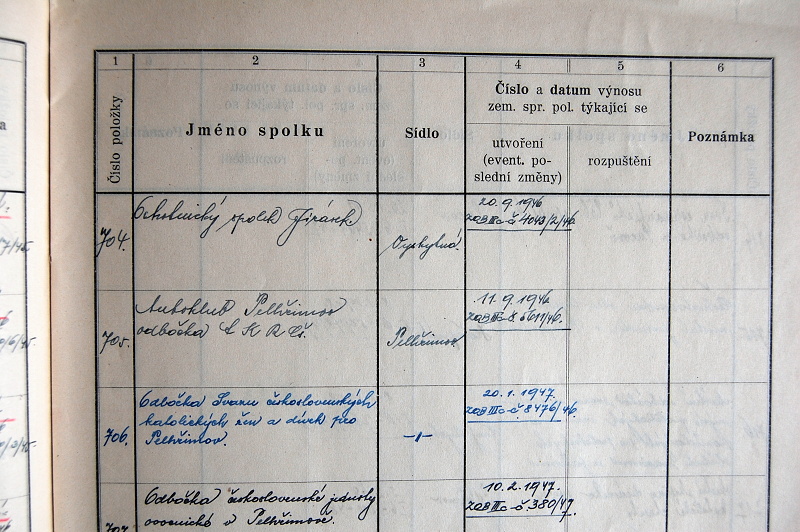 1 2 3 4 5 6
Číslo položky
Jméno spolku
Sídlo
Číslo a datum výnosu
zem. spr. pol. týkající se
utvoření
(event. po-
slední změny)
rozpuštění
Poznámka
704.
Ochotnický spolek Jirásek
20.9.1946
4043/2/46
705.
Autoklub Pelhřimov
odbočka
Pelhřimov
11.9.1946
706.
Odbočka Svazu československých
katolických žen a dívek pro
Pelhřimov
-"-
20.1.1947.
8476/46
707.
Odbočka československé jednoty
v Pelhřimově.
10.2.1947.
380/47.